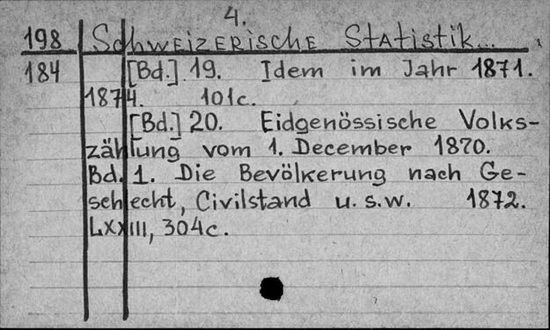 4.
198 Schweizerische Statistik...
184 [Bd.] 19. Idem im Jahr 1871.
1874. 101c.
[Bd.] 20. Eidgenössische Volks-
zählung vom 1. December 1870.
Bd. 1. Die Bevölkerung nach Ge-
schlecht, Civilstand u.s.w. 1872.
LXXIII, 304c.